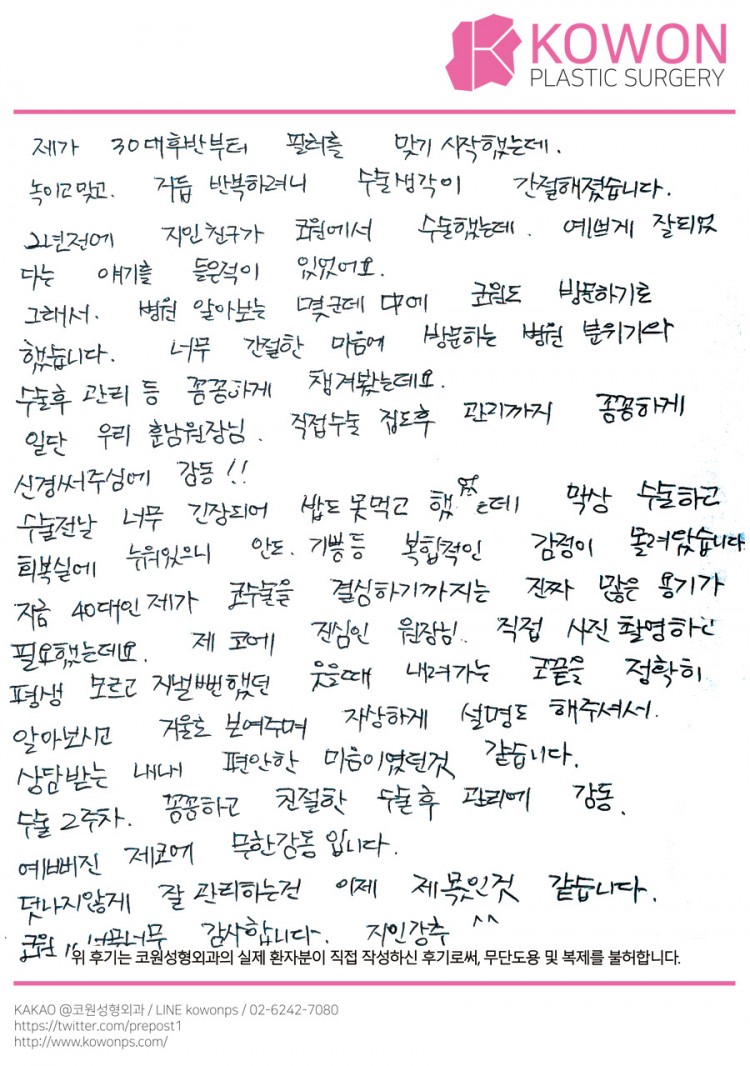 KOWON
PLASTIC SURGERY
제가 30대후반부터 필러를 맞기 시작했는데.
녹이고 맞고. 거듭 반복하려니 수술생각이 간절해졌습니다.
2년전에 지인친구가 코원에서 수술했는데. 예쁘게 잘되었
다는 얘기를 들은적이 있었어요.
그래서. 병원 알아보는 몇군데 中에 코원도 방문하기로
했습니다. 너무 간절한 마음에 방문하는 병원 분위기와
수술후 관리 등 꼼꼼하게 챙겨봤는데요.
일단 우리 훈남원장님. 직접수술 집도후 관리까지 꼼꼼하게
신경써주심에 감동 !!
수술전날 너무 긴장되어 밥도 못먹고 했었는데 막상 수술하고
회복실에 누워있으니 안도. 기쁨등 복합적인 감정이 몰려왔습니다
지금 40대인 제가 코수술을 결심하기까지는 진짜 많은 용기가
필요했는데요. 제 코에 진심인 원장님. 직접 사진 촬영하신
평생 모르고 지낼뻔했던 웃을때 내려가는 코끝을 정확히
알아보시고 거울로 보여주며 자상하게 설명도 해주셔서.
상담받는 내내 편안한 마음이였던것 같습니다.
수술 2주차. 꼼꼼하고 친절한 수술후 관리에 감동.
예뻐진 제코에 무한감동입니다.
덧나지않게 잘 관리하는건 이제 제 몫인것 같습니다.
코원 너무너무 감사합니다. 지인강추 ^^
위 후기는 코원성형외과의 실제 환자분이 직접 작성하신 후기로써, 무단도용 및 복제를 불허합니다.
KAKAO @코원성형외과 / LINE kowonps / 02-6242-7080
https://twitter.com/prepost1
http://www.kowonps.com/